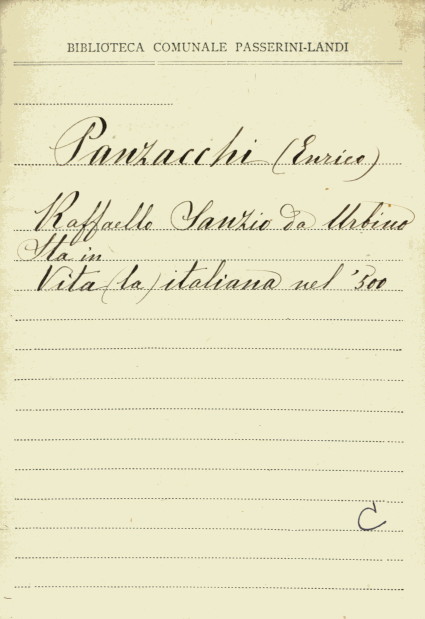 BIBLIOTECA COMUNALE PASSERINI-LANDI
Panzacchi (Enrico)
Raffaello Sanzio da Urbino
Sta in
Vita (la) italiana nel '500
C